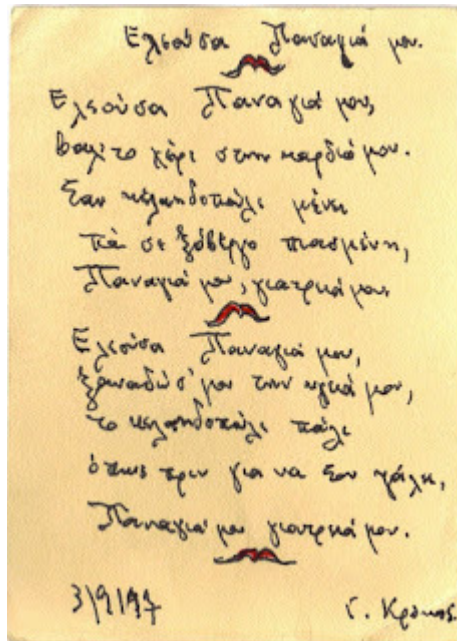 Ελεούσα Παναγιά μου.
Ελεούσα Παναγιά μου,
βαλ' το χέρι στην καρδιά μου.
Σαν κελαηδοπούλι μένει
πα σε ξόβεργο πιασμένη,
Παναγιά μου, γιατρειά μου.
Ελεούσα Παναγιά μου,
ξαναδώσ' μου την υγειά μου,
το κελαηδοπούλι πάλι
όπως πριν για να σου ψάλη,
Παναγιά μου γιατρειά μου.
3/9/97 Γ.